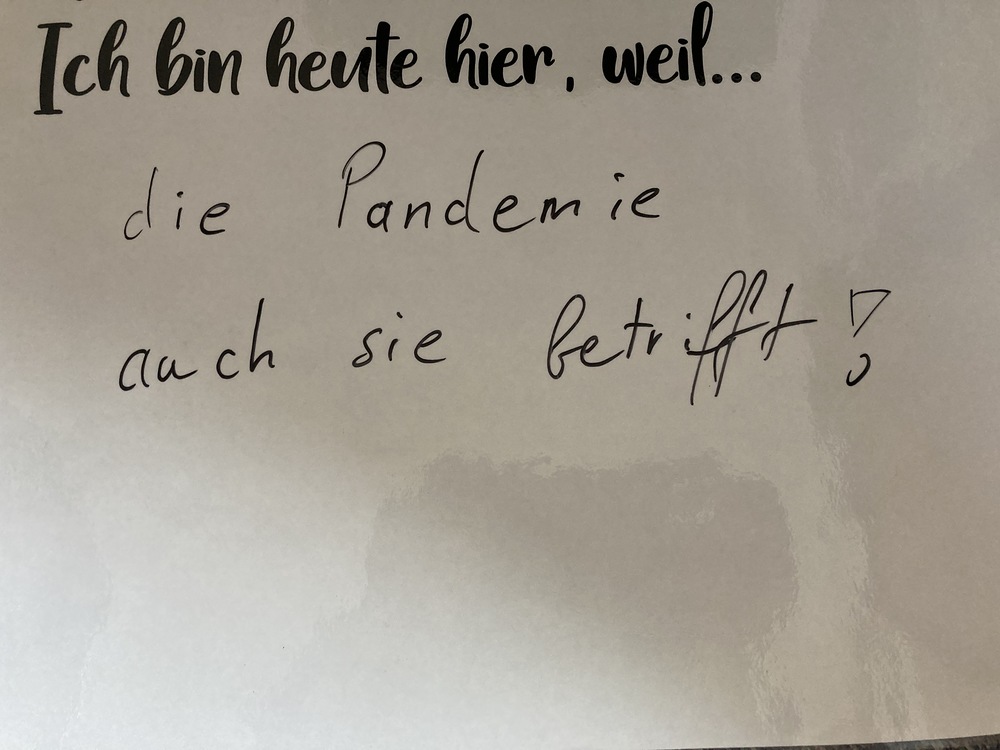 Ich bin heute hier, weil...
die Pandemie
auch sie betrifft!